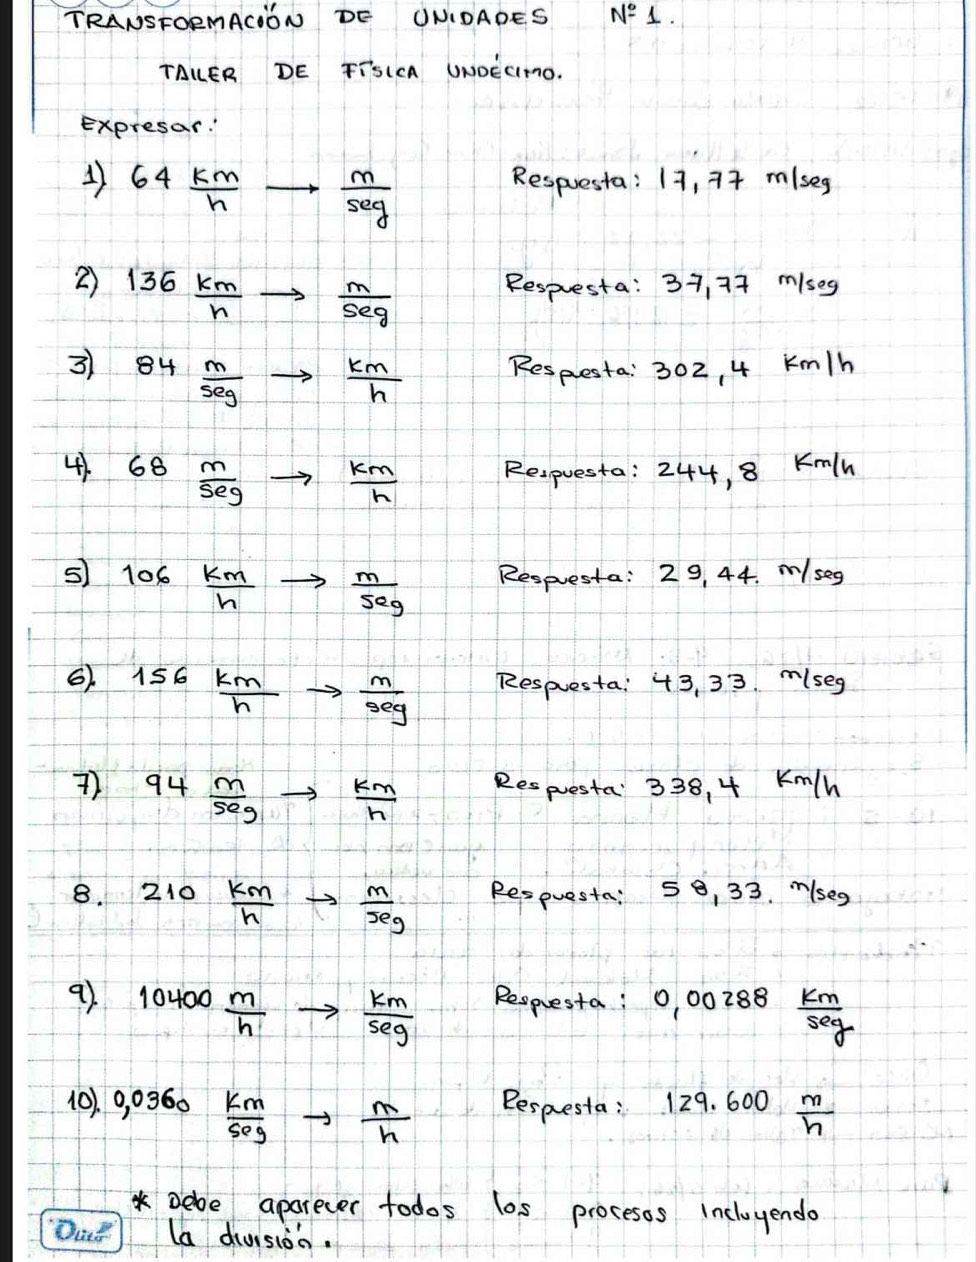 TRANSFORMACIÓN DE UNIDADES Nº 1.
TALLER DE FÍSICA UNDÉCIMO.
Expresar:
1) 64 Km/h → m/seg Respuesta: 17,77 m/seg
2) 136 Km/h → m/seg Respuesta: 37,77 m/seg
3) 84 m/seg → Km/h Respuesta: 302,4 Km/h
4). 68 m/seg → Km/h Respuesta: 244,8 Km/h
5) 106 Km/h → m/seg Respuesta: 29,44. m/seg
6). 156 Km/h → m/seg Respuesta: 43,33. m/seg
7) 94 m/seg → Km/h Respuesta: 338,4 Km/h
8. 210 Km/h → m/seg Respuesta: 58,33. m/seg
9). 10400 m/h → Km/seg Respuesta: 0,00288 Km/seg
10). 0,0360 Km/seg → m/h Respuesta: 129.600 m/h
* Debe aparecer todos los procesos incluyendo
la división.